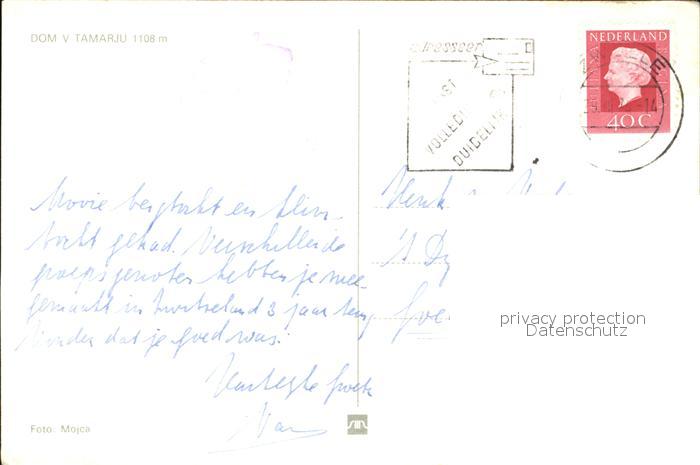 DOM V TAMARJU 1108 m
adresseer
JUIST
VOLLEDIG
DUIDELIJK
NEDERLAND
40 C
ZWOLLE
Mooie bergtocht en klim-
tocht gehad. Verschillende
groepsgenoten hebben je mee-
gemaakt in Zwitserland 3 jaar terug
Vinden dat je goed was.
Hartelijke groeten
Henk
't Dy
Goe
privacy protection
Datenschutz
Foto: Mojca